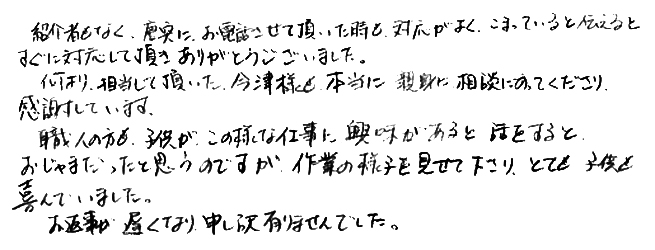 紹介者もなく、唐突に、お電話させて頂いた時も、対応がよく、こまっていると伝えると
すぐに対応して頂き ありがとうございました。
何より、担当して頂いた、今津様も 本当に 親身に 相談にのってくださり、
感謝しています。
職人の方も、子供が、この様な仕事に 興味があると 話をすると、
おじゃまだったと思うのですが、作業の様子を見せて下さり、とても 子供も
喜んでいました。
お返事が 遅くなり、申し訳有りませんでした。